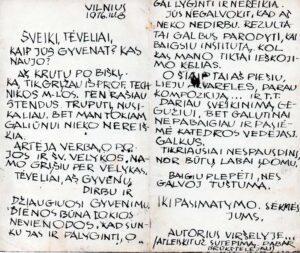 VILNIUS
1976.IV.8
SVEIKI, TĖVELIAI,
KAIP JŪS GYVENAT? KAS
NAUJO?
AŠ KRUTU PO BIŠKĮ.
KĄ TIK GRĮŽAU IŠ PROF. TECH-
NIKOS M-LOS. TEN RAŠIAU
STENDUS. TRUPUTĮ NUSI-
KALIAU. BET MAN TOKIAM
GALIŪNUI NIEKO NEREIŠ-
KIA.
ARTĖJA VERBA, O PO
JOS IR ŠV. VELYKOS. NA-
MO GRĮŠIU PER VELYKAS.
TĖVELIAI, AŠ GYVENU,
DIRBU IR
DŽIAUGIUOSI GYVENIMU.
DIENOS BŪNA TOKIOS
NEVIENODOS. KAD SUN-
KU JAS IR PALYGINTI, O
GAL LYGINTI IR NEREIKIA.
JŪS NEGALVOKIT, KAD AŠ
NIEKO NEDIRBU. REZULTA-
TAI GALBŪT PARODYTI, KAI
BAIGSIU INSTITUTĄ. KOL
KAS MANO TIKTAI IEŠKOJI-
MAI.
O ŠIAIP TAI AŠ PIEŠIU,
LIEJU AKVARELES, DARAU
KOMPOZICIJĄ... IR T.T.
DARIAU SVEIKINIMĄ GE-
GUŽEI, BET GALUTINAI
NEPABAIGIAU IR PASIĖ-
MĖ KATEDROS VEDĖJAS.
GALKUS.
TIKRIAUSIAI NESPAUSDINS,
NORS BŪTŲ LABAI ĮDOMU.
BAIGIU PLEPĖTI, NES
GALVOJ TUŠTUMA.
IKI PASIMATYMO. SĖKMĖS
JUMS,
AUTORIUS VIRŠELYJE...
(ATLEISKIT UŽ SUTEPIMĄ, DABAR